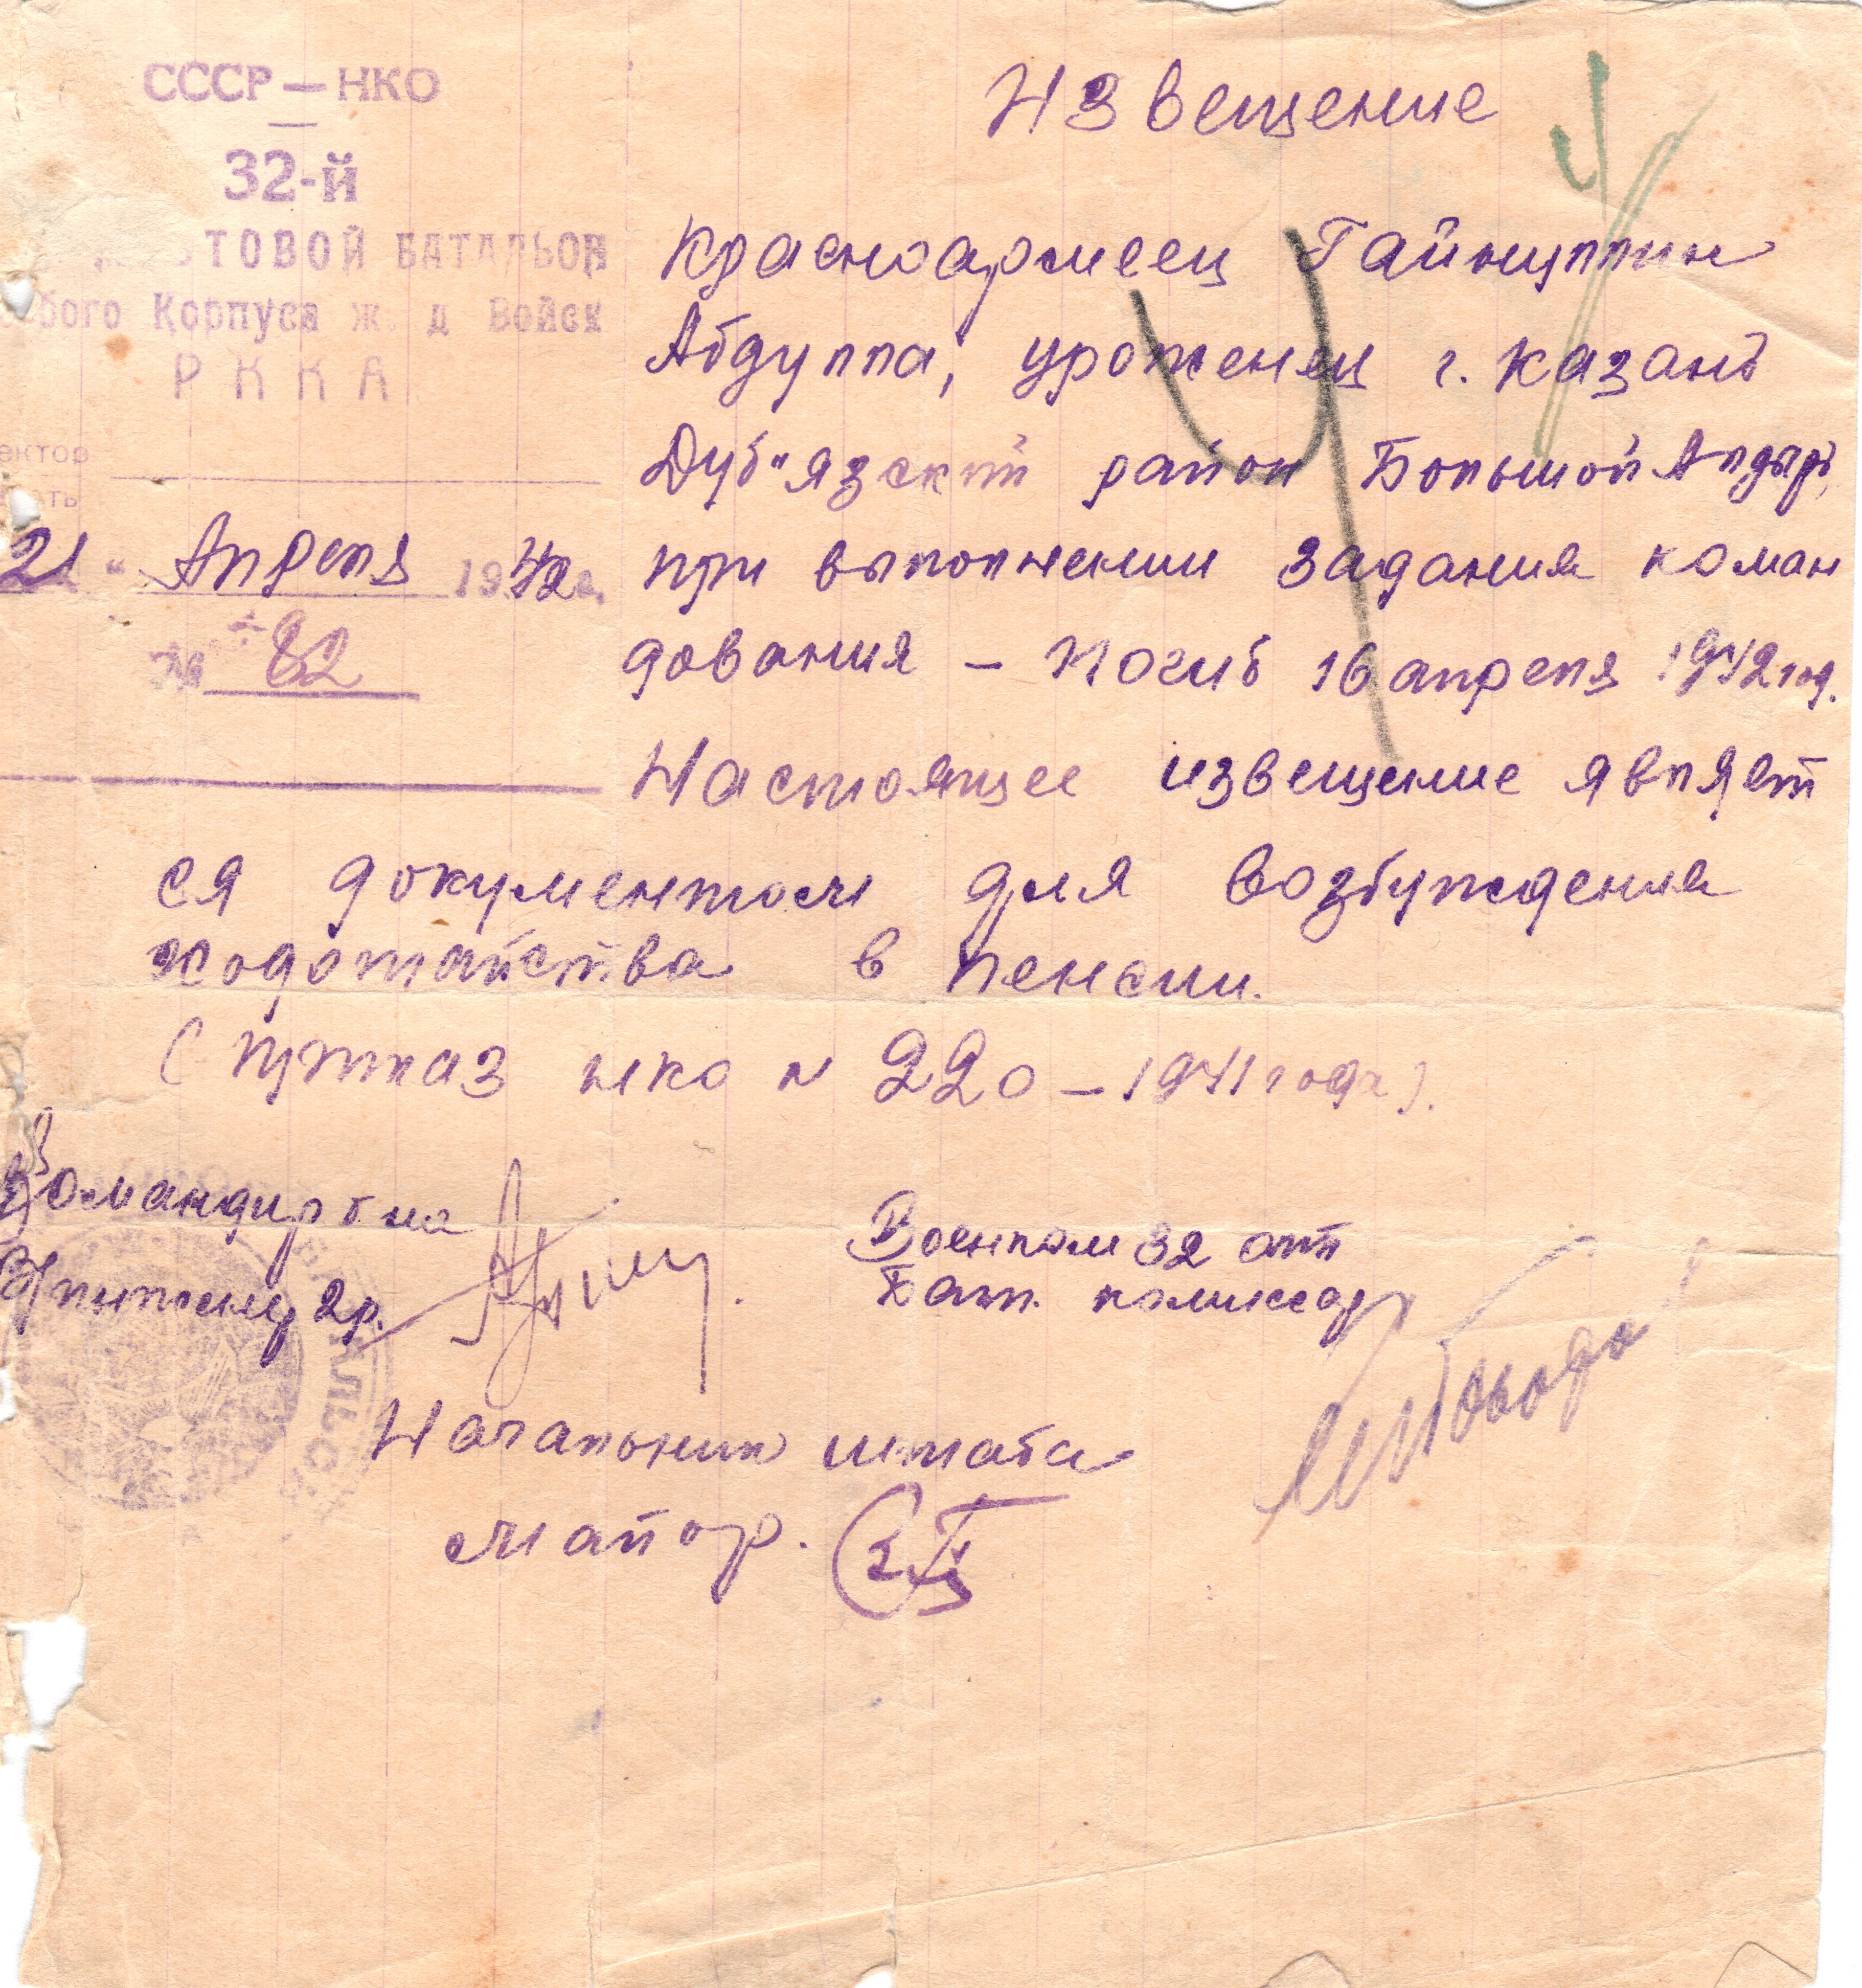 СССР — НКО
32-й
ТОВОЙ БАТАЛЬОН
бого Корпуса ж. д Войск
РККА
21 " Апреля 1942 г.
№ 82
Извещение
Красноармеец Гайнуллин
Абдулла, уроженец г. Казань
Дуб"язский район Большой Алдыр,
при выполнении задания коман
дования – погиб 16 апреля 1942 год.
Настоящее извещение являет
ся документом для возбуждения
ходотайства в пенсии.
(Приказ нко N 220 – 1941 года).
Командир б-на
2р.
Военком 32
Бат. комиссар
Начальник штаба
майор.